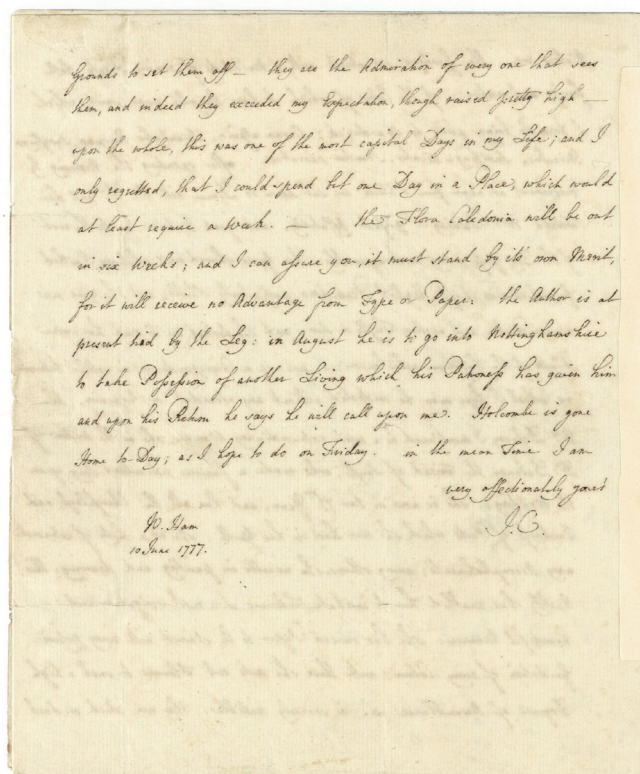 Grounds to set them off — they are the Admiration of every one that sees
them, and indeed they exceeded my Expectation, though raised pretty high —
upon the whole, this was one of the most capital Days in my Life; and I
only regretted, that I could spend but one Day in a Place, which would
at least require a Week. — the Flora Caledonia will be out
in six Weeks; and I can assure you, it must stand by it's own Merit,
for it will receive no Advantage from Type or Paper: the Author is at
present tied by the Leg: in August he is to go into Nottinghamshire
to take Possession of another Living which his Patroness has given him
and upon his Return he says he will call upon me. Holcombe is gone
Home to-Day; as I hope to do on Friday. in the mean Time I am
very affectionately yours
J. C.
W. Ham
10 June 1777.